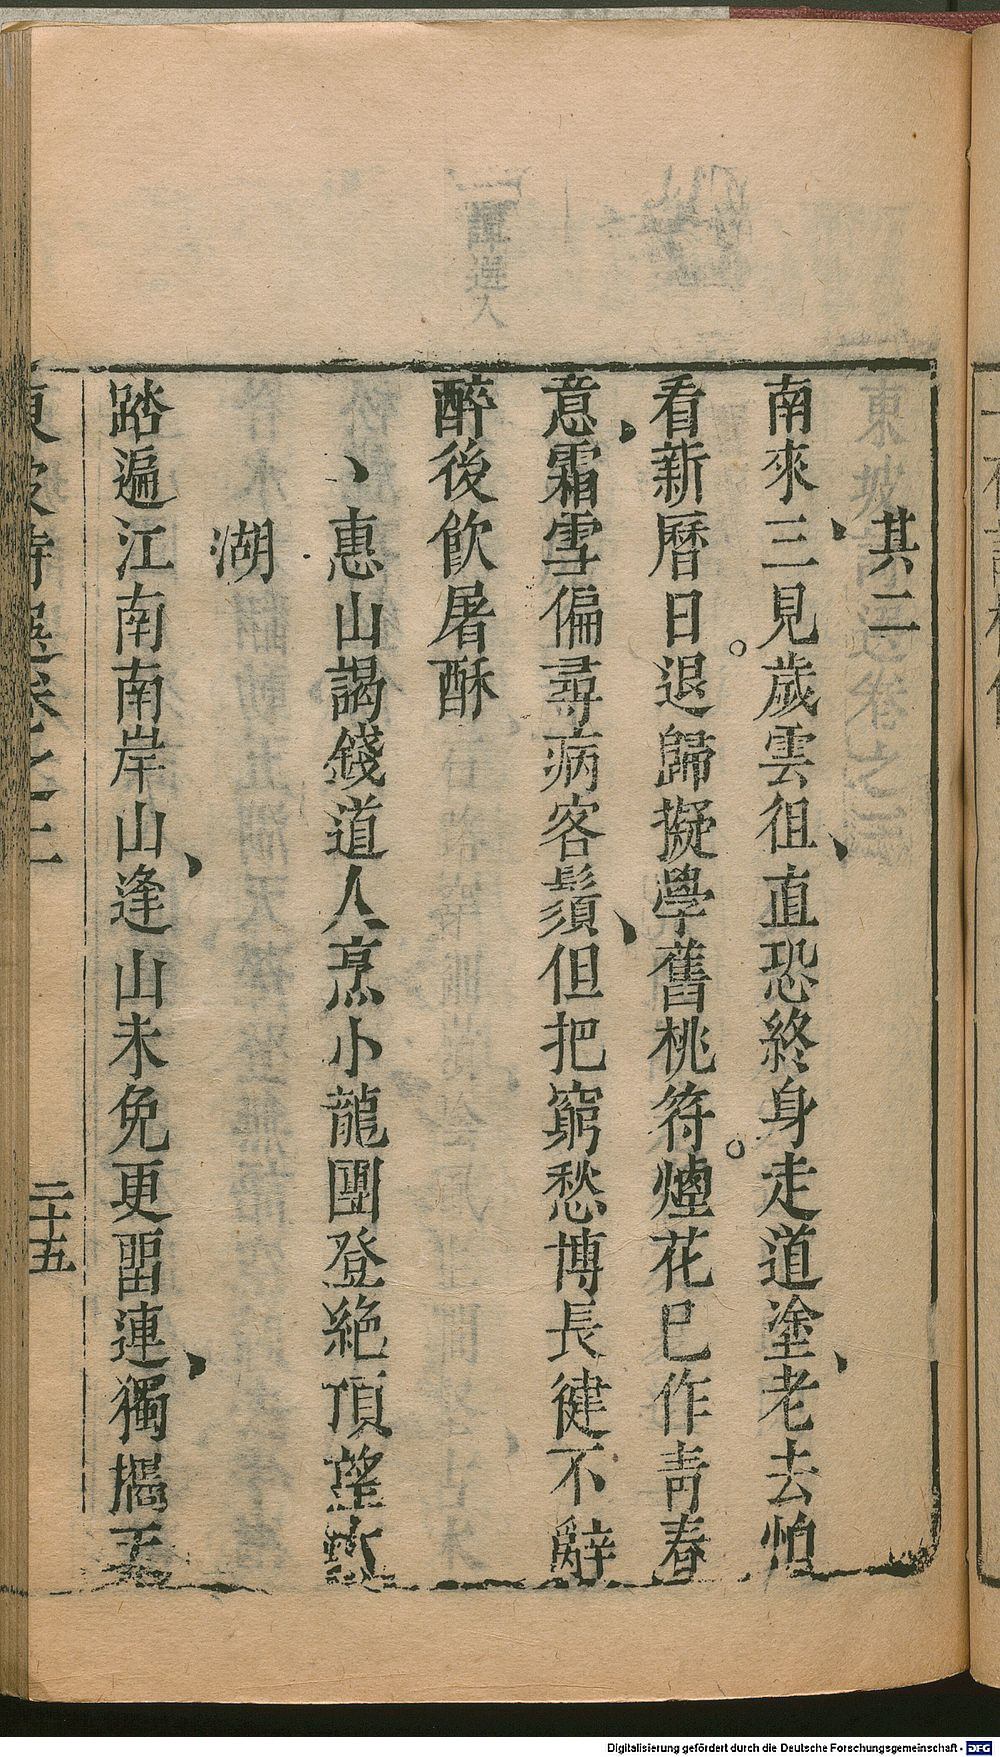 其二
南來三見歲雲徂直恐終身走道塗老去怕
看新曆日退歸擬學舊桃符煙花已作靑春
意霜雪偏尋病客鬚但把窮愁博長健不辭
醉後飮屠酥
惠山謁錢道人烹小龍團登絶頂望太
湖
踏遍江南南岸山逢山未免更畱連獨攜天
東坡詩選卷之二
二十五
Digitalisierung gefördert durch die Deutsche Forschungsgemeinschaft - DFG